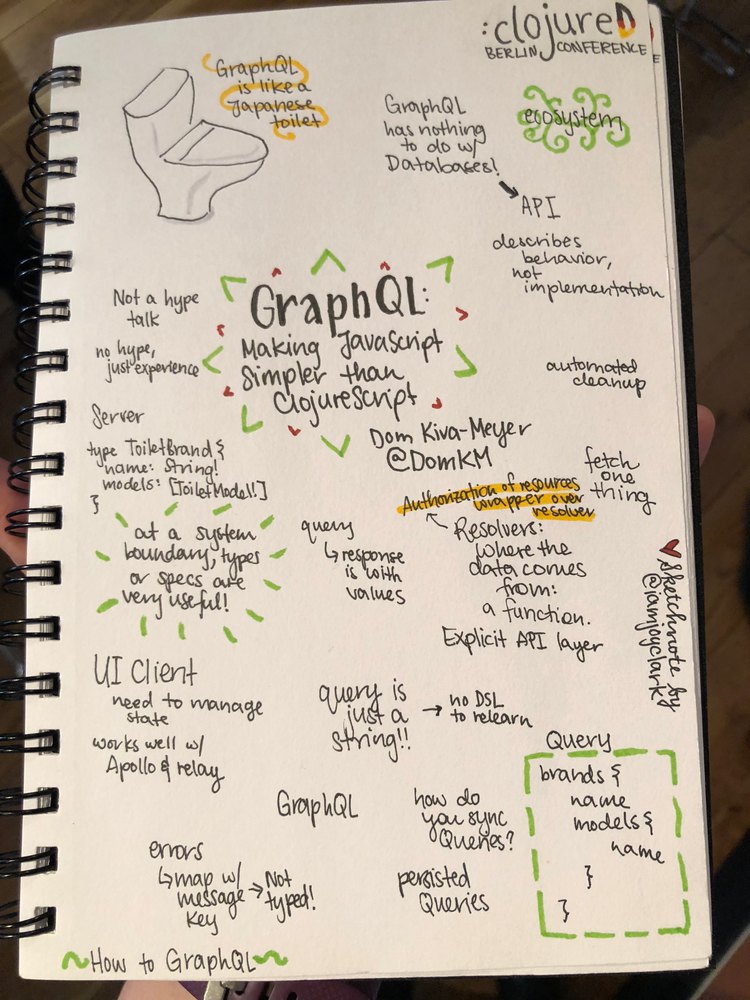 :clojureD
BERLIN CONFERENCE
GraphQL
is like a
Japanese
toilet
GraphQL
has nothing
to do w/
Databases!
ecosystem
API
describes
behavior,
not
implementation
Not a hype
talk
no hype,
just experience
GraphQL:
Making JavaScript
Simpler than
ClojureScript
Dom Kiva-Meyer
@DomKM
automated
cleanup
Server
type ToiletBrand {
name: String!
models: [ToiletModel!]
}
fetch
one
thing
Authorization of resources
wrapper over
resolver
at a system
boundary, types
or specs are
very useful!
query
↳ response
is with
values
Resolvers:
where the
data comes
from:
a function.
Explicit API layer
♥ Sketchnote by
@iamjoyclark
UI Client
need to manage
state
works well w/
Apollo & relay
query is
just a
string!!
→ no DSL
to relearn
Query
brands {
name
models {
name
}
}
GraphQL
how do
you sync
Queries?
persisted
Queries
errors
↳ map w/
message
key
→ Not
typed!
~How to GraphQL~